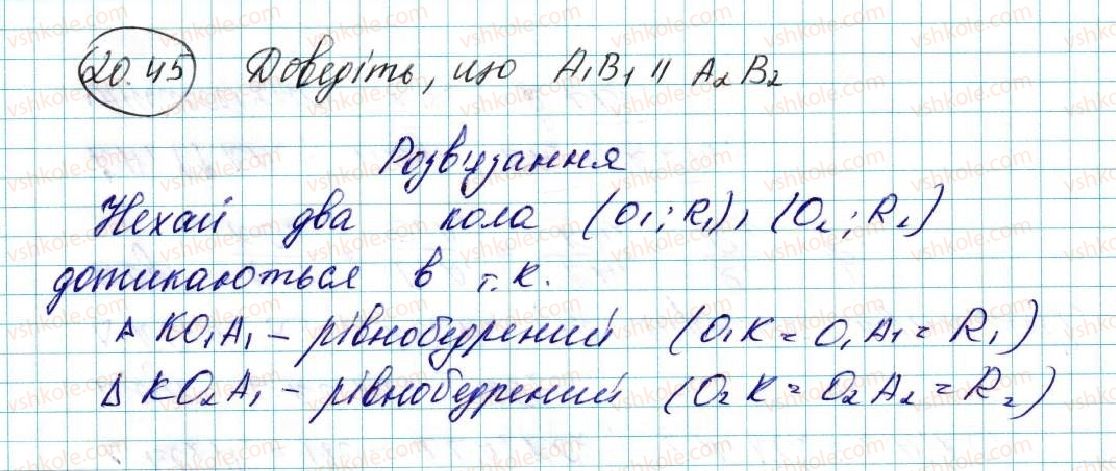 20.45 Доведіть, що A₁B₁ || A₂B₂
Розв'язання
Нехай два кола (O₁; R₁), (O₂; R₂)
дотикаються в т. K.
Δ KO₁A₁ – рівнобедрений (O₁K = O₁A₁ = R₁)
Δ KO₂A₁ – рівнобедрений (O₂K = O₂A₂ = R₂)